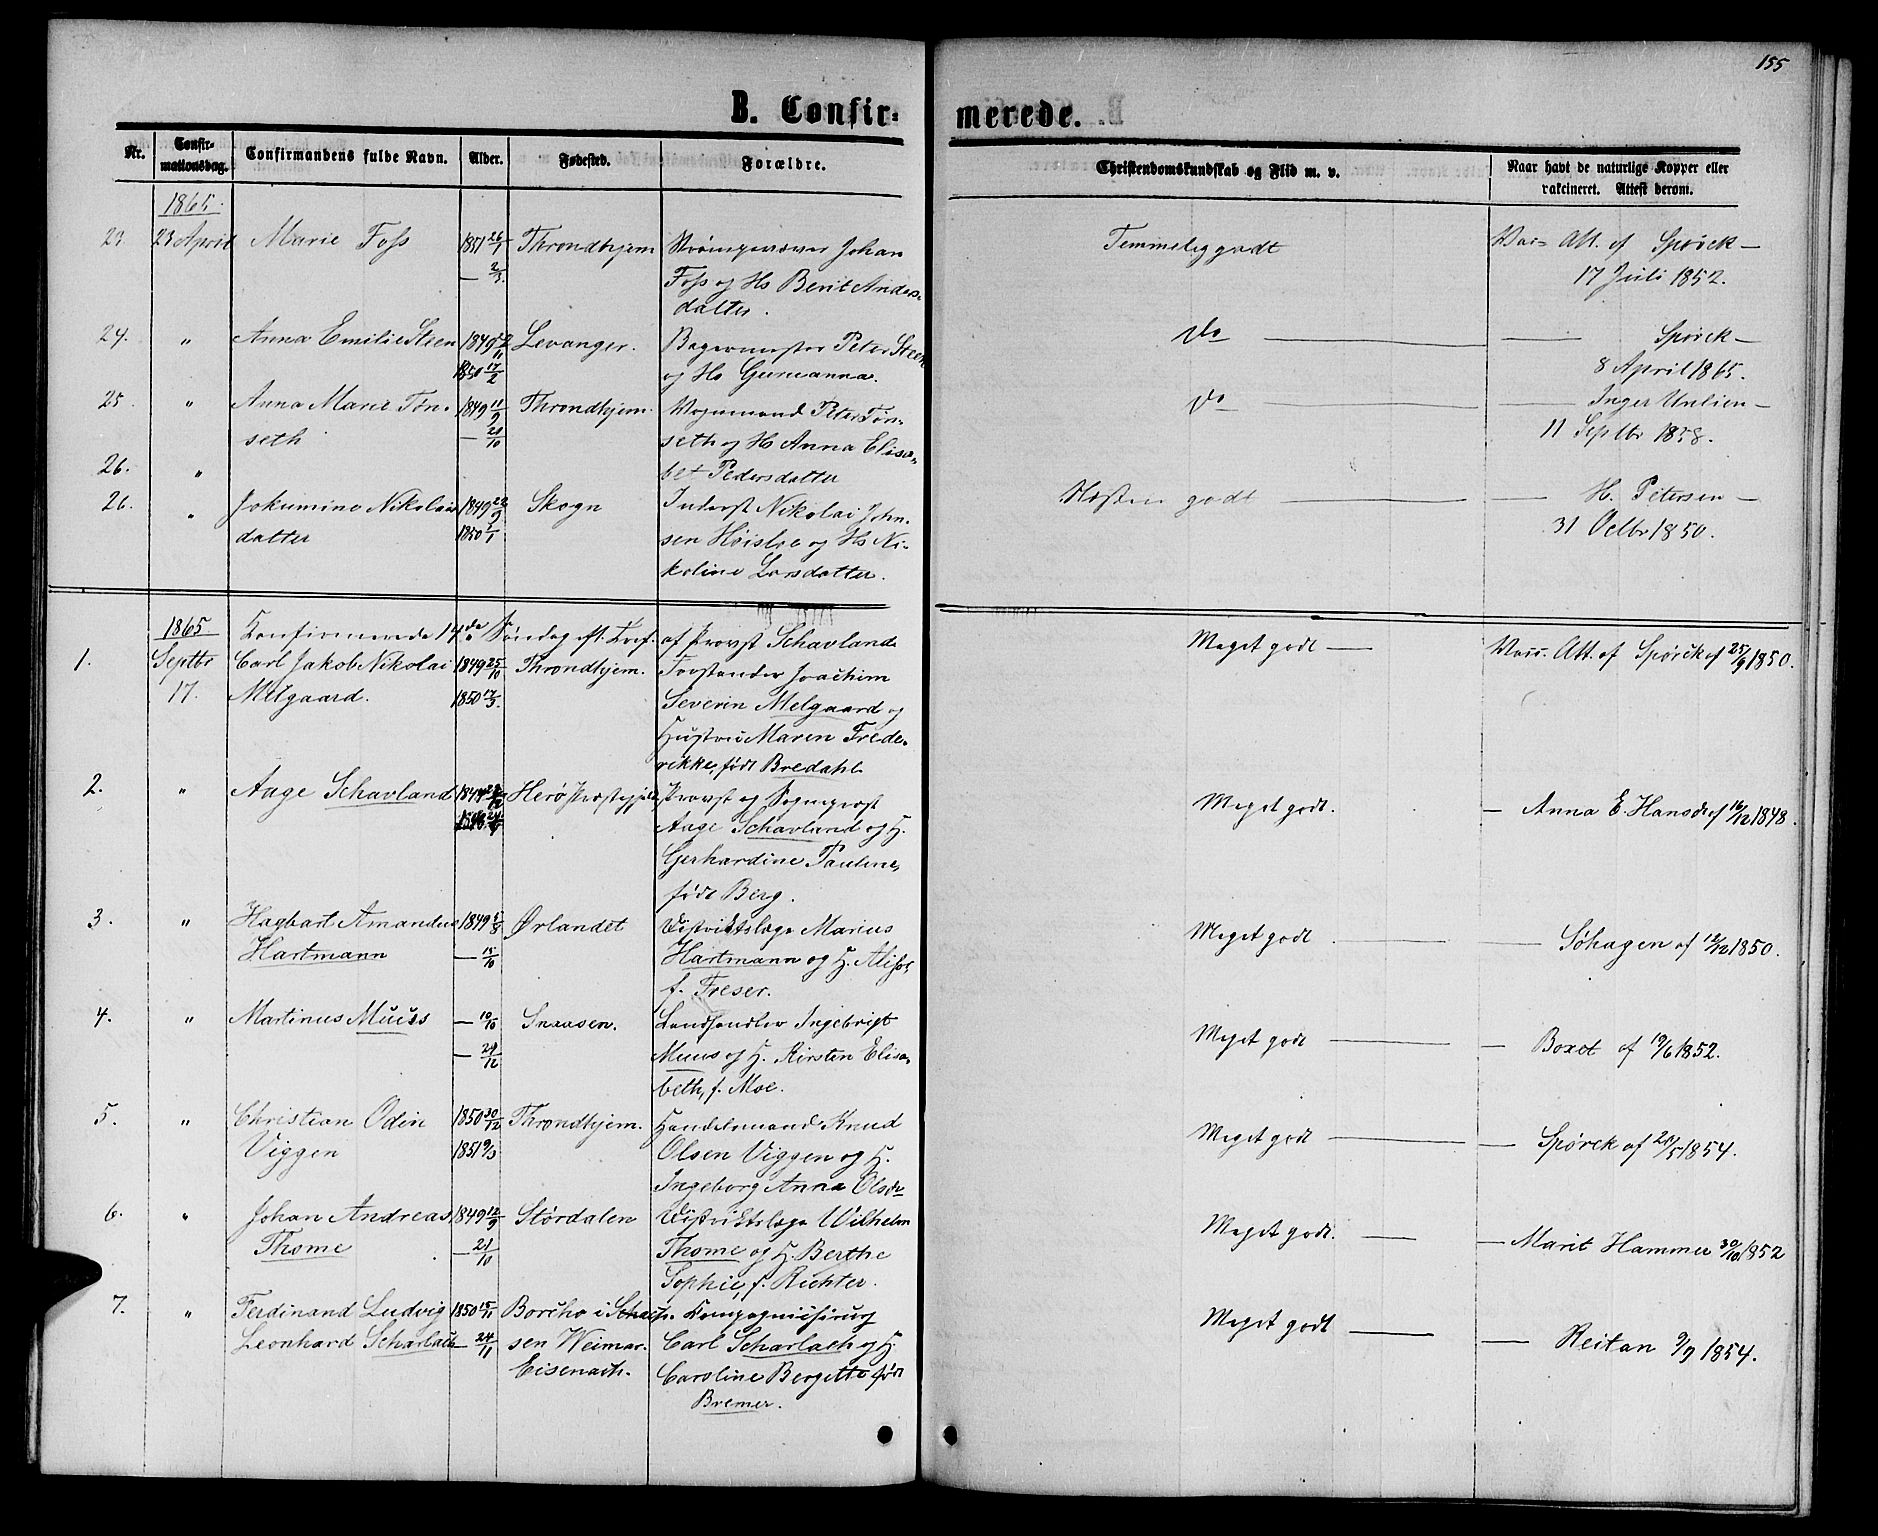 155
B. Confir- merede.
Nr. Confir-mationsdag. Confirmandens fulde Navn. Alder. Fødested. Forældre. Christendomskundskab og Flid m. v. Naar havt de naturlige Kopper eller vakcineret. Attest derom.
1865.
23. 23 April Marie Foss 1851 26/1 Throndhjem Johan Temmelig godt Vac. Att. af Spörck
— 2/3. Foss og Hs Berit Anders- 17 Juli 1852.
datter.
24. " Anna Emilie Steen 1849 /11 Levanger. Bagermester Peter Steen Do — Spörck
1850 17/2 og Hs Gurianna. 8 April 1865.
25. " Anna Marie Tøn- 1849 11/9 Throndhjem. Vognmand Peter Tøn- Do — Inger
seth — 21/10 seth og H Anna Elisa- 11 Septbr 1858.
26. " bet Pedersdatter
26. " Jokumine Nikolai 1849 /9 Skogn Inderst Nikolai John- Næsten godt — H. Petersen
datter 1850 /1 sen og Hs Ni- 31 Octbr 1850.
koline Larsdatter.
1865 Konfirmerede 14de Søndag eft. Tref. af Provst Schavland
1. Septbr Carl Jakob Nikolai 1849 25/10 Throndhjem. Forstander Joachim Meget godt — Vacc. Att. af Spörck af 25/9 1850.
17. Melgaard. 1850 17/3. Severin Melgaard og
Hustru Maren Frede-
rikke, født Bredahl
2. " Aage Schavland Herø Præstegjeld Provst og Sognepræst Meget godt. — Anna E. Hansdr af 16/12 1848.
Aage Schavland og H.
Gerhardine Pauline,
født Berg.
3. " Hagbart Amandus 1849 /8 Ørlandet Distriktslæge Marius Meget godt — Søhagen af 12/12 1850.
Hartmann — 15/10 Hartmann og H.
f. Freser.
4. " Martinus Muus — 10/10 Snaasen. Landhandler Ingebrigt Meget godt — af 19/6 1852.
— 29/12 Muus og H. Kirsten Elisa-
beth, f. Moe.
5. " Christian Odin 1850 30/12 Throndhjem. Handelsmand Knud Meget godt — Spörck af 1854.
Viggen 1851 9/3 Olsen Viggen og H.
Ingeborg Anna Olsdr
6. " Johan Andreas 1849 12/9 Størdalen Distriktslæge Wilhelm Meget godt. — Marit Hammer 30/10 1852
Thome — 21/10 Thome og H. Berthe
Sophie, f. Richter.
7. " Ferdinand Ludvig 1850 15/11 i Sach- Kompagniehirurg Meget godt — Reitan 9/9 1854.
Leonhard Scharlach — 24/11 sen Weimar- Carl Scharlach og H.
Eisenach. Caroline Bergitte født
Bremer.